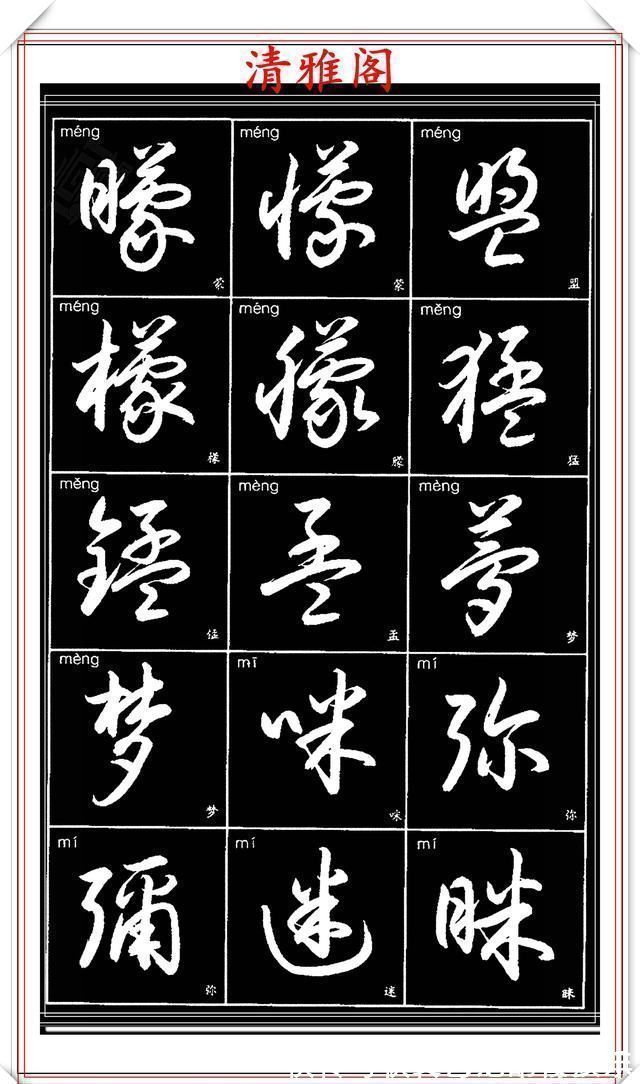 清雅阁
méng méng méng
矇 懞 盟
蒙 蒙 盟
méng méng měng
檬 朦 猛
檬 朦 猛
měng mèng mèng
锰 孟 夢
锰 孟 梦
mèng mī mí
梦 咪 弥
梦 咪 弥
mí mí mí
彌 迷 眯
弥 迷 眯